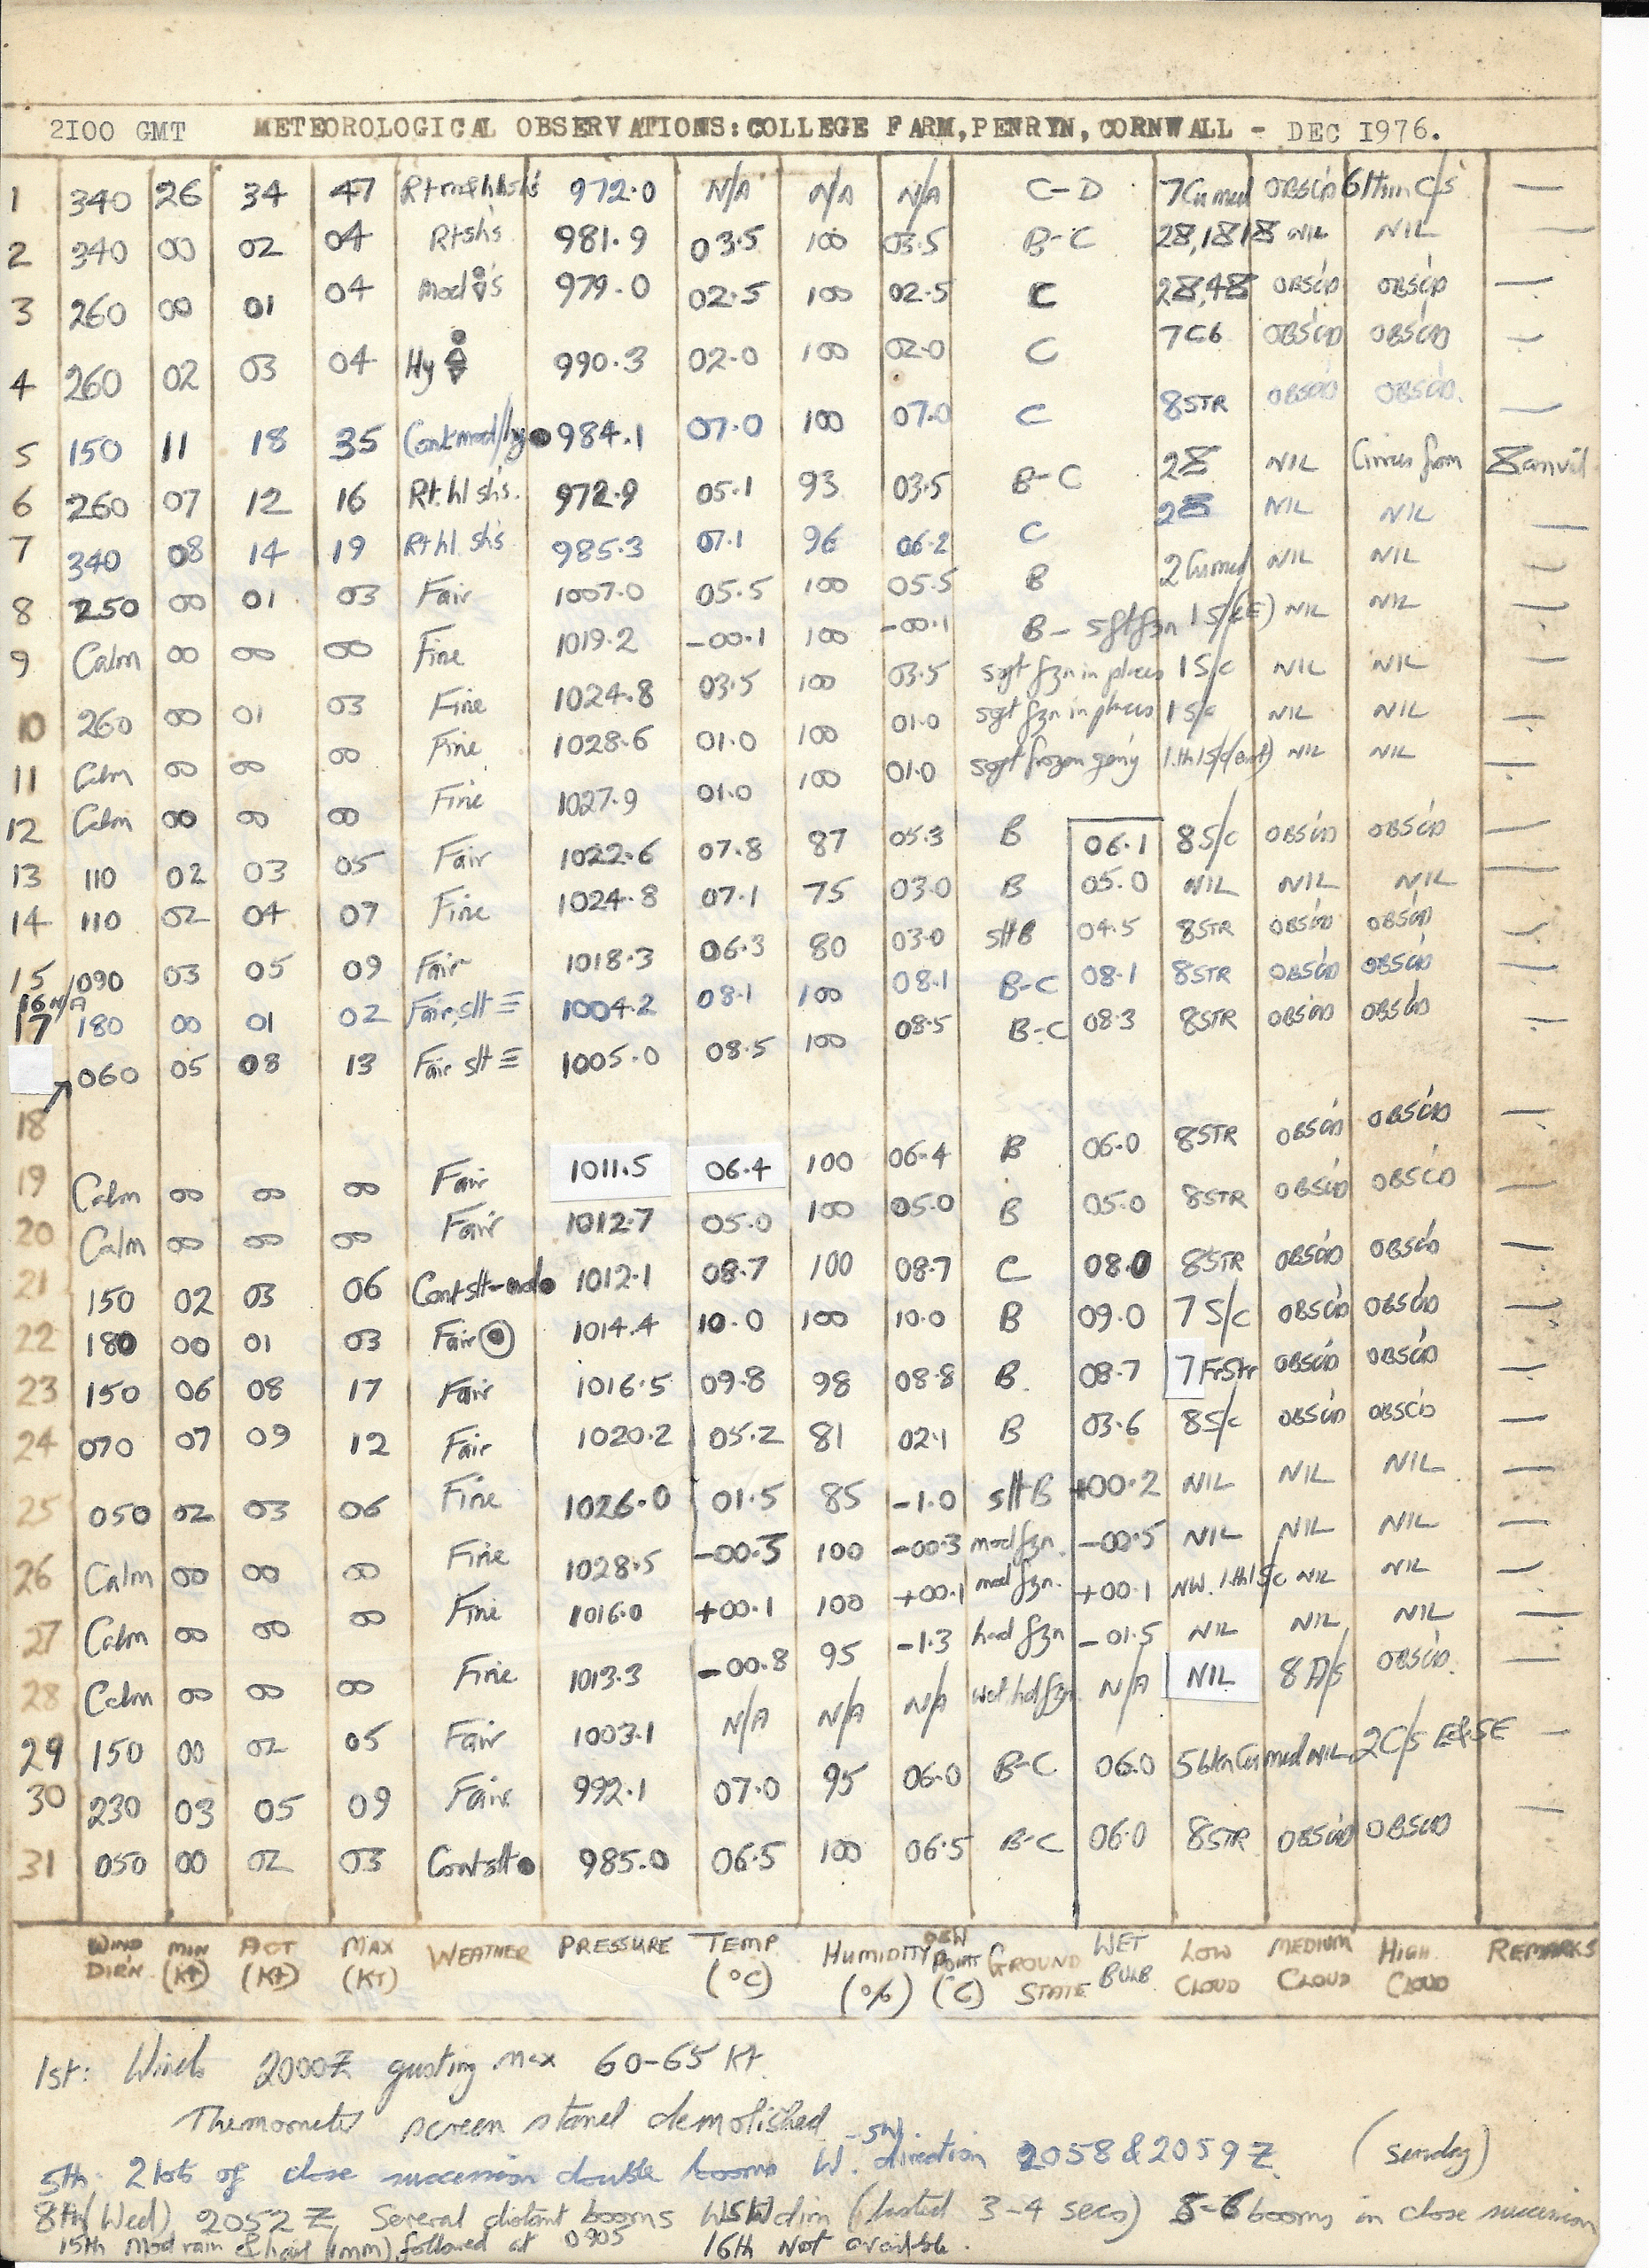 2100 GMT METEOROLOGICAL OBSERVATIONS: COLLEGE FARM, PENRYN, CORNWALL - DEC 1976.
1 340 26 34 47 972.0 N/A N/A N/A C-D 7Cu med OBSC'D 6thin C/s —
2 340 00 02 04 Rtshs 981.9 03.5 100 03.5 B-C NIL NIL —
3 260 00 01 04 Mod 979.0 02.5 100 02.5 C OBSC'D OBSC'D —
4 260 02 03 04 Hy 990.3 02.0 100 02.0 C 7C6 OBSC'D OBSC'D —
5 150 11 18 35 Contmod/hy● 984.1 07.0 100 07.0 C 8STR OBSC'D OBSC'D. —
6 260 07 12 16 Rt.hl shs. 972.9 05.1 93 03.5 B-C NIL Cirrus from anvil
7 340 08 14 19 Rt hl. shs 985.3 07.1 96 06.2 C NIL NIL —
8 250 00 01 03 Fair 1007.0 05.5 100 05.5 B 2Cumed NIL NIL —
9 Calm 00 00 00 Fine 1019.2 -00.1 100 -00.1 B- sftfzn 1S/c(E) NIL NIL —
10 260 00 01 03 Fine 1024.8 03.5 100 03.5 sqft fzn in places 1S/c NIL NIL —
11 Calm 00 00 00 Fine 1028.6 01.0 100 01.0 sqft fzn in places 1S/c NIL NIL —
12 Calm 00 00 00 Fine 1027.9 01.0 100 01.0 sqft frozen NIL NIL —
13 110 02 03 05 Fair 1022.6 07.8 87 05.3 B 06.1 8S/c OBSC'D OBSC'D —
14 110 02 04 07 Fine 1024.8 07.1 75 03.0 B 05.0 NIL NIL NIL —
15 090 03 05 09 Fair 1018.3 06.3 80 03.0 slt B 04.5 8STR OBSC'D OBSC'D —
16 N/A
17 180 00 01 02 Fair,slt ≡ 1004.2 08.1 100 08.1 B-C 08.1 8STR OBSC'D OBSC'D —
18 060 05 08 13 Fair slt ≡ 1005.0 08.5 100 08.5 B-C 08.3 8STR OBSC'D OBSC'D —
19 Calm 00 00 00 Fair 1011.5 06.4 100 06.4 B 06.0 8STR OBSC'D OBSC'D —
20 Calm 00 00 00 Fair 1012.7 05.0 100 05.0 B 05.0 8STR OBSC'D OBSC'D —
21 150 02 03 06 Contslt-mod● 1012.1 08.7 100 08.7 C 08.0 8STR OBSC'D OBSC'D —
22 180 00 01 03 Fair 1014.4 10.0 100 10.0 B 09.0 7S/c OBSC'D OBSC'D —
23 150 06 08 17 Fair 1016.5 09.8 98 08.8 B. 08.7 7FrStr OBSC'D OBSC'D —
24 070 07 09 12 Fair 1020.2 05.2 81 02.1 B 03.6 8S/c OBSC'D OBSC'D —
25 050 02 03 06 Fine 1026.0 01.5 85 -1.0 slt B +00.2 NIL NIL NIL —
26 Calm 00 00 00 Fine 1028.5 -00.3 100 -00.3 mod fzn. -00.5 NIL NIL NIL —
27 Calm 00 00 00 Fine 1016.0 +00.1 100 +00.1 mod fzn. +00.1 NW. 1.th1S/c NIL NIL —
28 Calm 00 00 00 Fine 1013.3 -00.8 95 -1.3 hard fzn -01.5 NIL NIL NIL —
29 150 00 02 05 Fair 1003.1 N/A N/A N/A wet.hdfzn. N/A NIL 8A/s OBSC'D. —
30 230 03 05 09 Fair 992.1 07.0 95 06.0 B-C 06.0 5bkn Cu med NIL 2C/s E&SE —
31 050 00 02 03 Contslt● 985.0 06.5 100 06.5 B-C 06.0 8STR OBSC'D OBSC'D —
WIND DIRN. MIN (Kt) ACT (Kt) MAX (KT) WEATHER PRESSURE TEMP. (°C) HUMIDITY (%) DEW POINT (°C) GROUND STATE WET BULB LOW CLOUD MEDIUM CLOUD HIGH CLOUD REMARKS
1st: Winds 2000Z gusting max 60-65 Kt.
Thermometer screen stand demolished
5th: 2 lots of close succession double booms W.-SW. direction 2058 & 2059 Z. (Sunday)
8th (Wed) 2052 Z Several distant booms WSW dirn (lasted 3-4 secs) 5-6 booms in close succession
15th Mod rain & hail (1mm) followed at 0905 16th Not available.